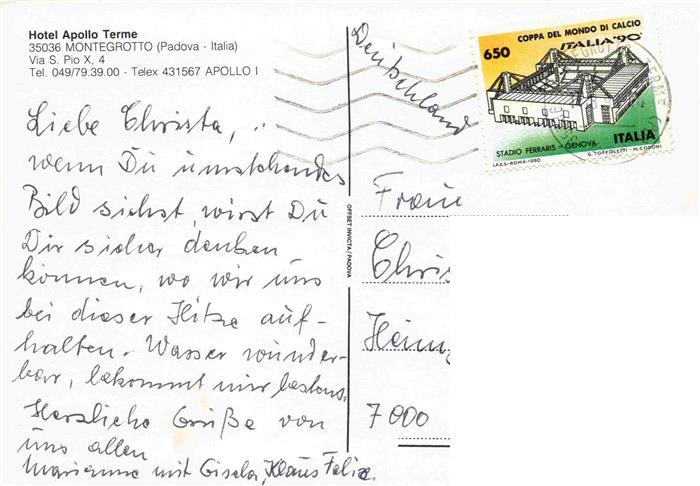 Hotel Apollo Terme
35036 MONTEGROTTO (Padova - Italia)
Via S. Pio X, 4
Tel. 049/79.39.00 - Telex 431567 APOLLO I
Liebe Christa,
wenn Du umstehendes
Bild siehst, wirst Du
Dir sicher denken
können, wo wir uns
bei dieser Hitze auf-
halten. Wasser wunder-
bar, bekommt mir bestens.
Herzliche Grüße von
uns allen
Marianne mit Gisela, Klaus Felix.
OFFSET INVICTA/PADOVA
Deutschland
650
COPPA DEL MONDO DI CALCIO
ITALIA '90
STADIO FERRARIS - GENOVA
ITALIA
I.P.Z.S.-ROMA-1990
G. TOFFOLETTI - M. CODONI
Frau
Chris
7000